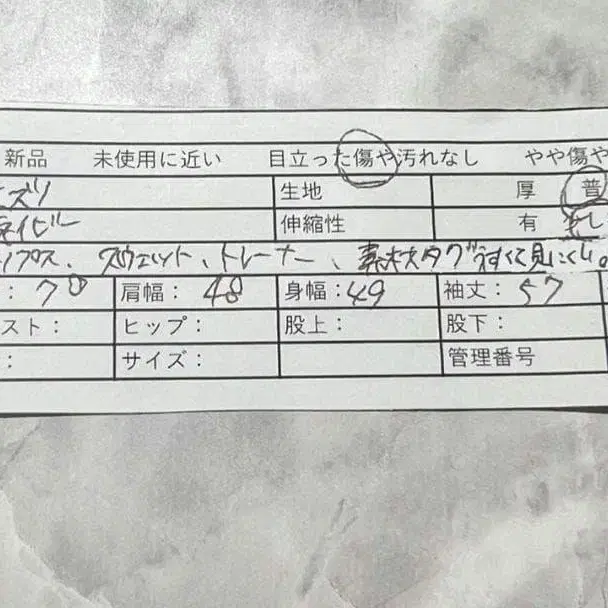 新品 未使用に近い 目立った傷や汚れなし やや傷や
生地 厚 普
ネイビー 伸縮性 有 無し
スウェット、トレーナー、素材タグうすくて見にくい。
: 70 肩幅: 48 身幅: 49 袖丈: 57
スト: ヒップ: 股上: 股下:
: サイズ: 管理番号